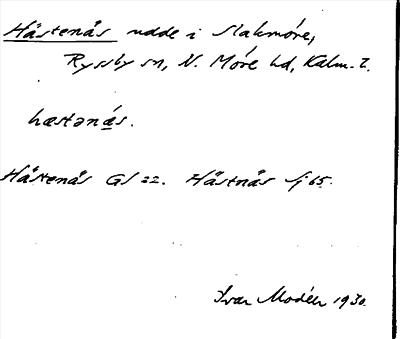 Hästenäs udde i Slakmöre,
Ryssby sn, N. Möre hd, Kalm. l.
hæstənä́s.
Hästenäs GS 22. Hästnäs Sj 65.
Ivar Modéer 1930.